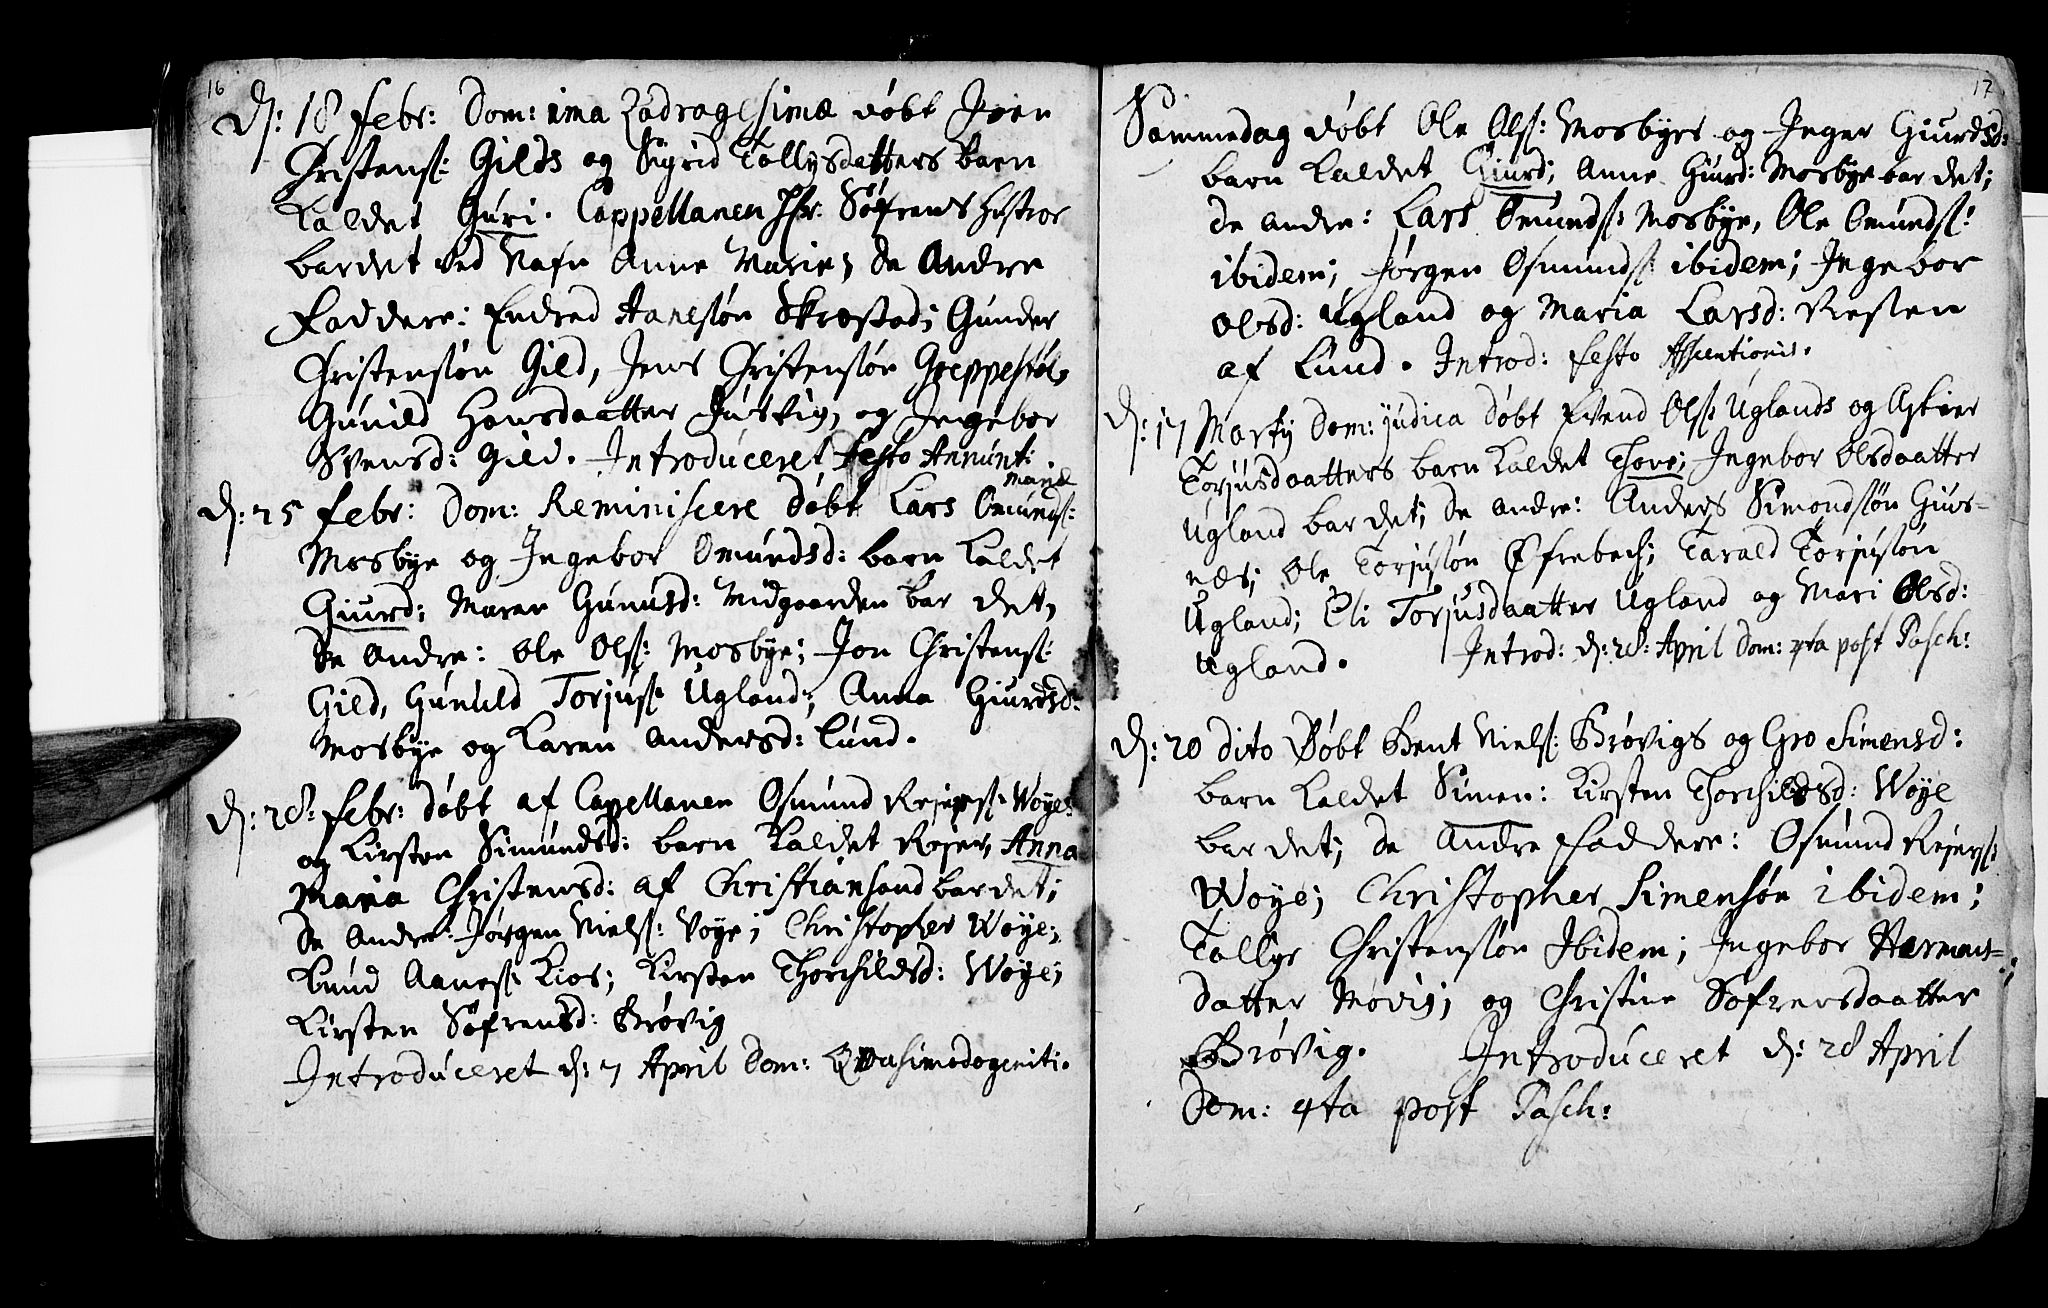 16
D: 18 febr: Dom: ima Qadragesimæ døbt Joen
Christens: Gilds og Sigrid Tallysdatters barn
kaldet Guri. Cappellanen Hr: Søfrens Hustroe
bar det ved Nafn Anne Marie; de Andre
Faddere: Endred Aanesøn Skræstad; Gunder
Christensøn Gild, Jens Christensøn Greppestøl,
Gunild Hansdaatter Jusvig, og Ingebor
Svensd: Gild. Introduceret festo Annunt:
Mariæ
D: 25 febr: Dom: Reminiscere døbt Lars Omunds:
Mosbye og Ingebor Omundsd: barn kaldet
Giurd; Maren Gunulsd: Midgaarden bar det,
de andre: Ole Ols: Mosbye; Jon Christens:
Gild, Gunuld Torjus: Ugland; Anna Giurdsd:
Mosbye og Karen Andersd: Lund.
D: 28: febr: døbt af Capellanen Osmund Rejers: Woyes
og Kirsten Simundsd: barn kaldet Rejer, Anna
Maria Christensd: af Christiansand bar det;
de andre: Jørgen Niels: Voye; Christopher Woye;
Knud Aanes: Kios; Kirsten Thorchildsd: Woye;
Kirsten Søfrensd: Brøvig
Introduceret d: 7 April Dom: Qvasimodogeniti.
17
Sammedag døbt Ole Ols: Mosbyes og Inger Giurdsd:
barn kaldet Giurd; Anne Giurd: Mosbye bar det;
de andre: Lars Omunds: Mosbye, Ole Omunds:
ibidem; Jørgen Osmunds: ibidem; Ingebor
Olsd: Ugland og Maria Larsd: Resten
af Lund. Introd: festo Ascentionis.
D: 17 Martij Dom: Judica døbt Evend Ols: Uglands og Astier
Torjusdaatters barn kaldet Thore; Ingebor Olsdaatter
Ugland bar det; de andre: Anders Simondsøn Gius-
næs; Ole Torjusøn Øfrebech; Tarald Torjusøn
Ugland; Eli Torjusdaatter Ugland og Mari Olsd:
Ugland. Introd: d: 28: April Dom: 4ta post Pasch:
D: 20 dito Døbt Bent Niels: Brøvigs og Gro Simensd:
barn kaldet Simen: Kirsten Thorchildsd: Woye
bar det; de Andre Faddere: Osmund Rejers:
Woye; Christopher Simensøn ibidem;
Tallys Christensøn Ibidem; Ingebor Hermans-
datter Møvig; og Christine Søfrensdaatter
Brøvig. Introduceret d: 28 April
Dom: 4ta post Pasch: